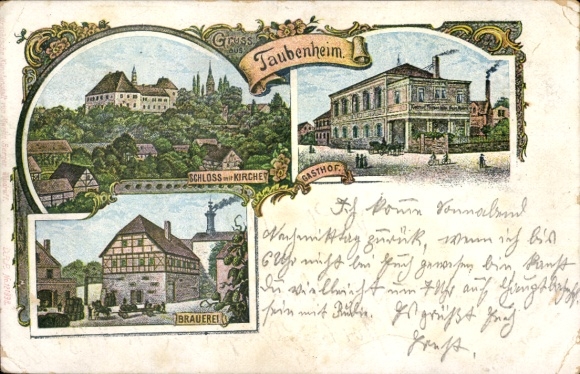 Gruss aus
Taubenheim.
SCHLOSS MIT KIRCHE
GASTHOF.
BRAUEREI
Ich komme Sonnabend
Nachmittag zurück, wenn ich bis
6 Uhr nicht bei Euch gewesen bin kannst
du vielleicht um 7 Uhr auf
sein mit Es grüßt Euch